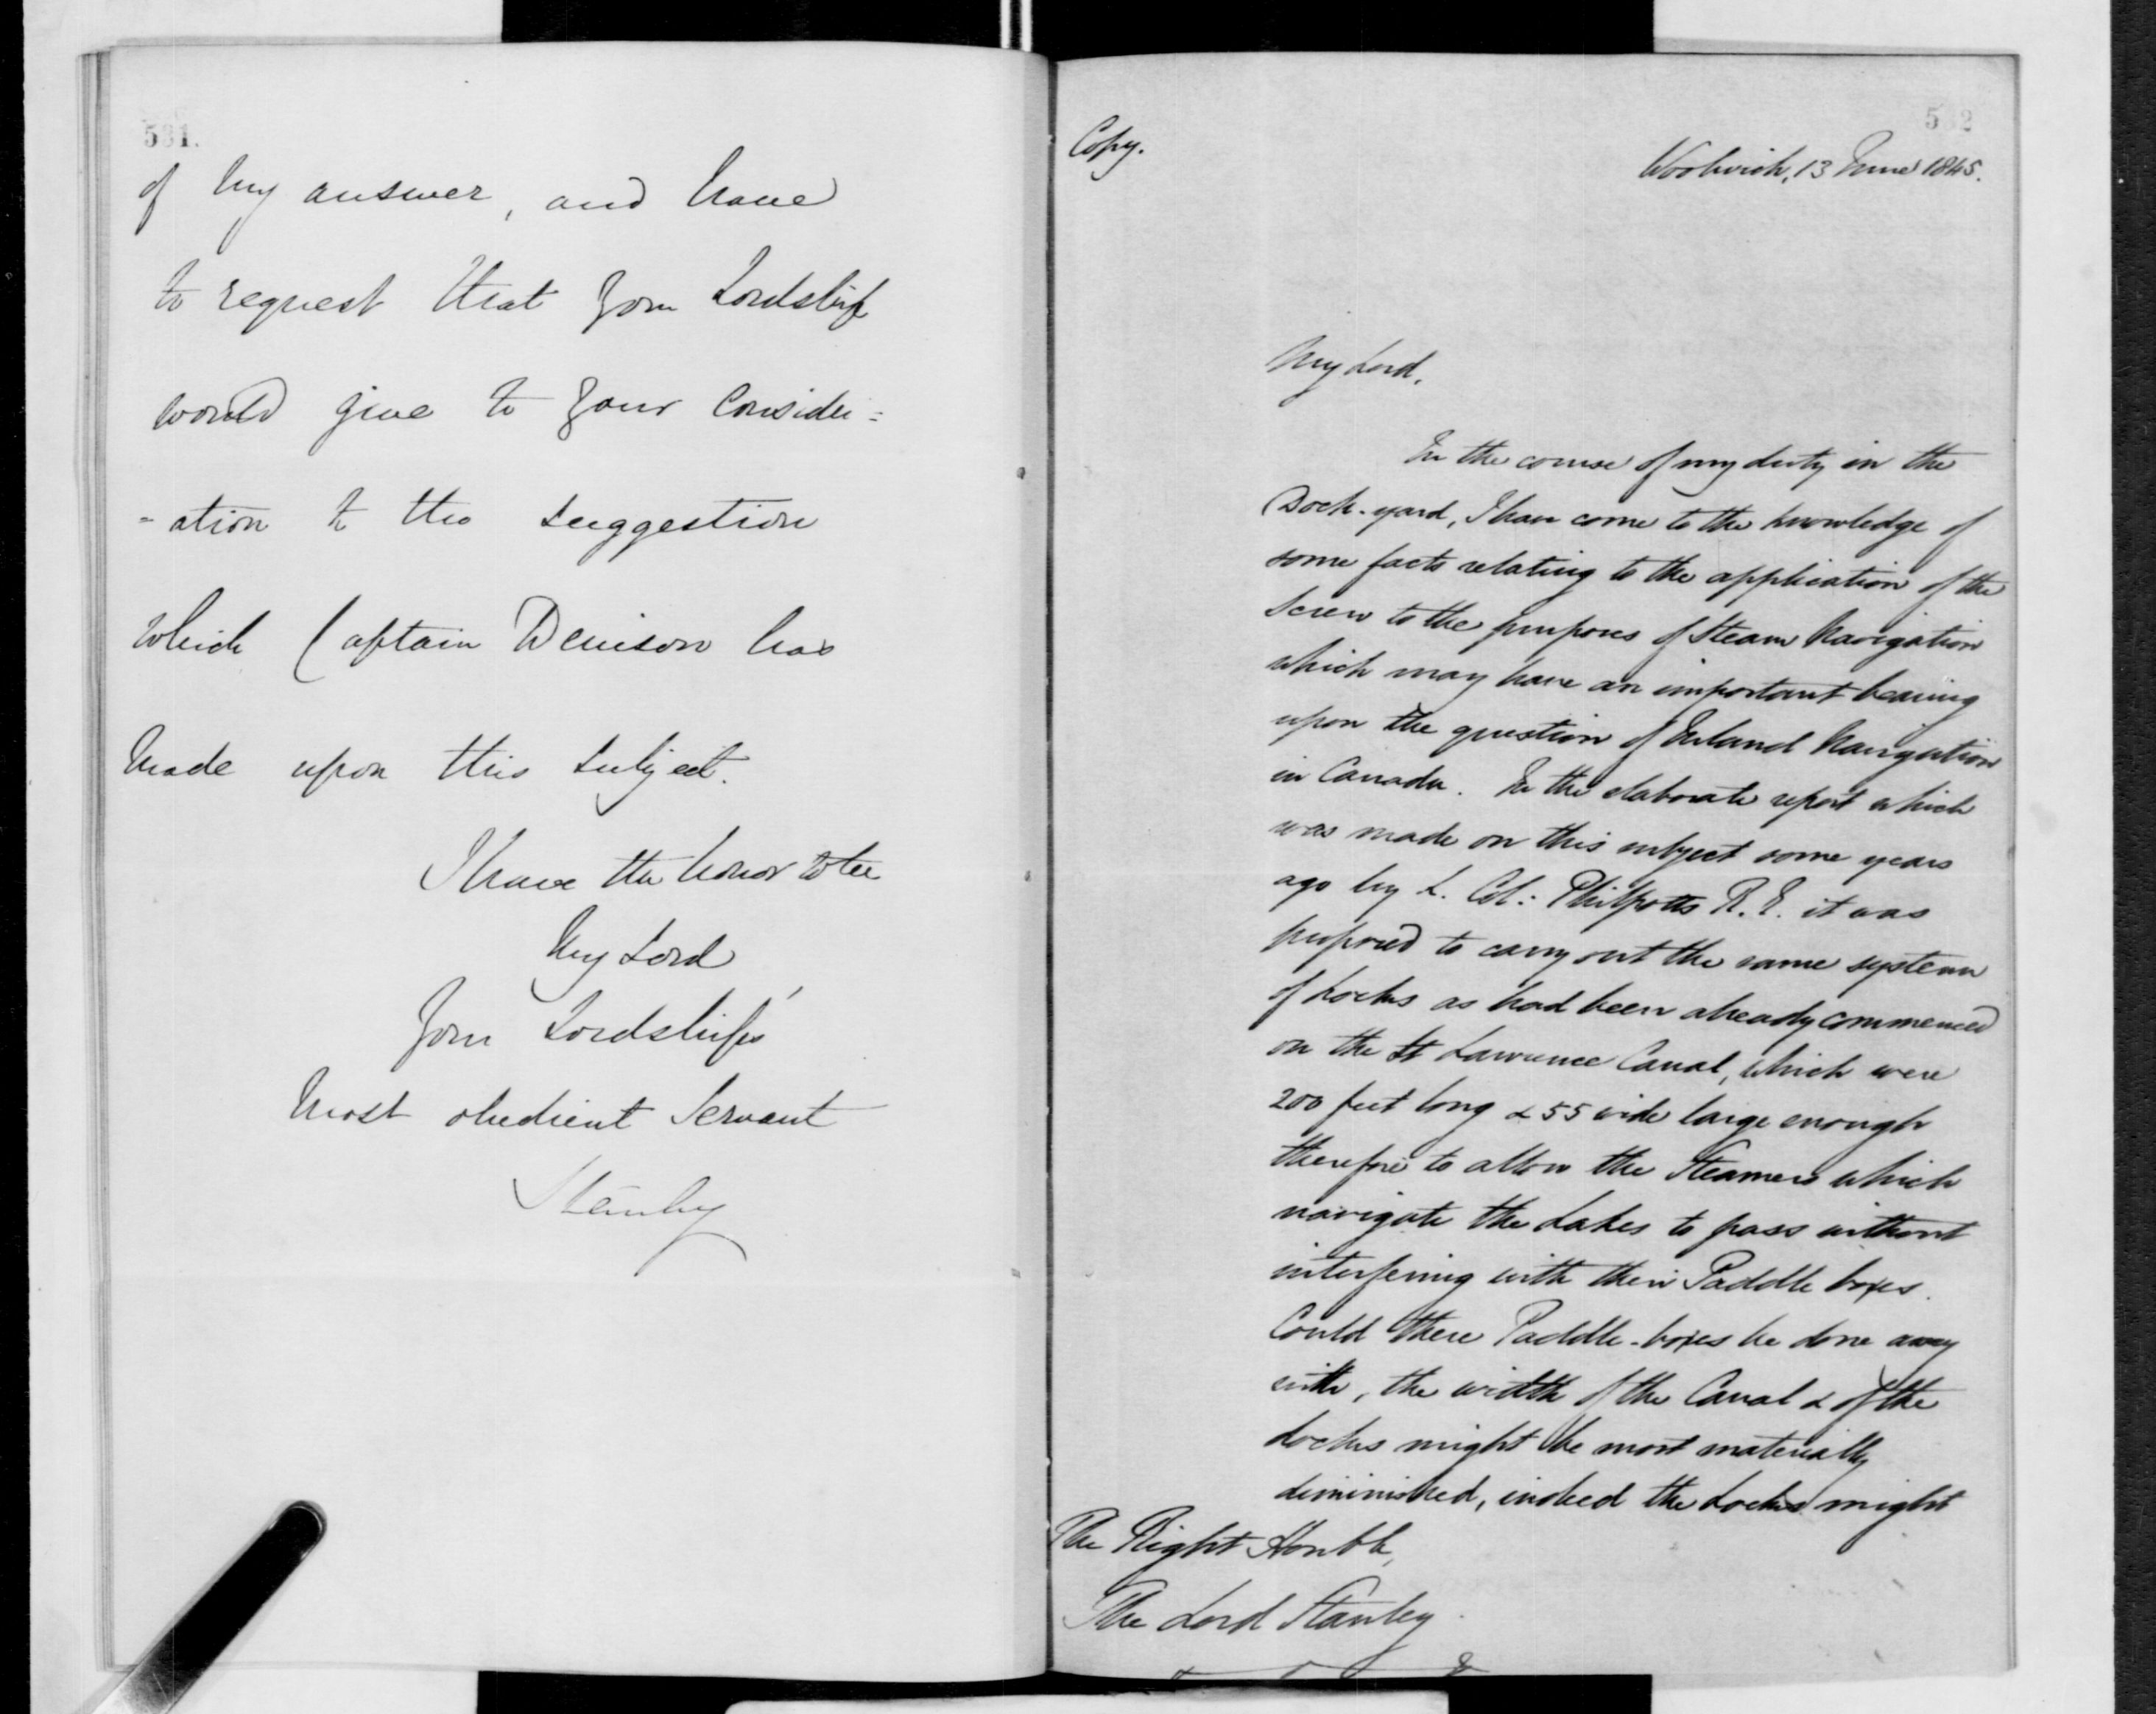 531.
of my answer, and have
to request that your Lordship
would give to your consider=
=ation to the suggestion
which Captain Denison has
made upon this subject.
I have the honor to be
My Lord
Your Lordship's
Most obedient Servant
Stanley
532
Copy.
Woolwich, 13 June 1845.
My Lord,
In the course of my duty in the
Dock-yard, I have come to the knowledge of
some facts relating to the application of the
Screw to the purposes of Steam Navigation
which may have an important bearing
upon the question of Inland Navigation
in Canada. In the elaborate report which
was made on this subject some years
ago by L. Col: Philpotts R.E. it was
proposed to carry out the same system
of Locks as had been already commenced
on the St Lawrence Canal, which were
200 feet long & 55 wide large enough
therefore to allow the Steamers which
navigate the Lakes to pass without
interfering with their Paddle boxes.
Could these Paddle-boxes be done away
with, the width of the Canal & of the
Locks might be most materially
diminished, indeed the Locks might
The Right Honble,
The Lord Stanley